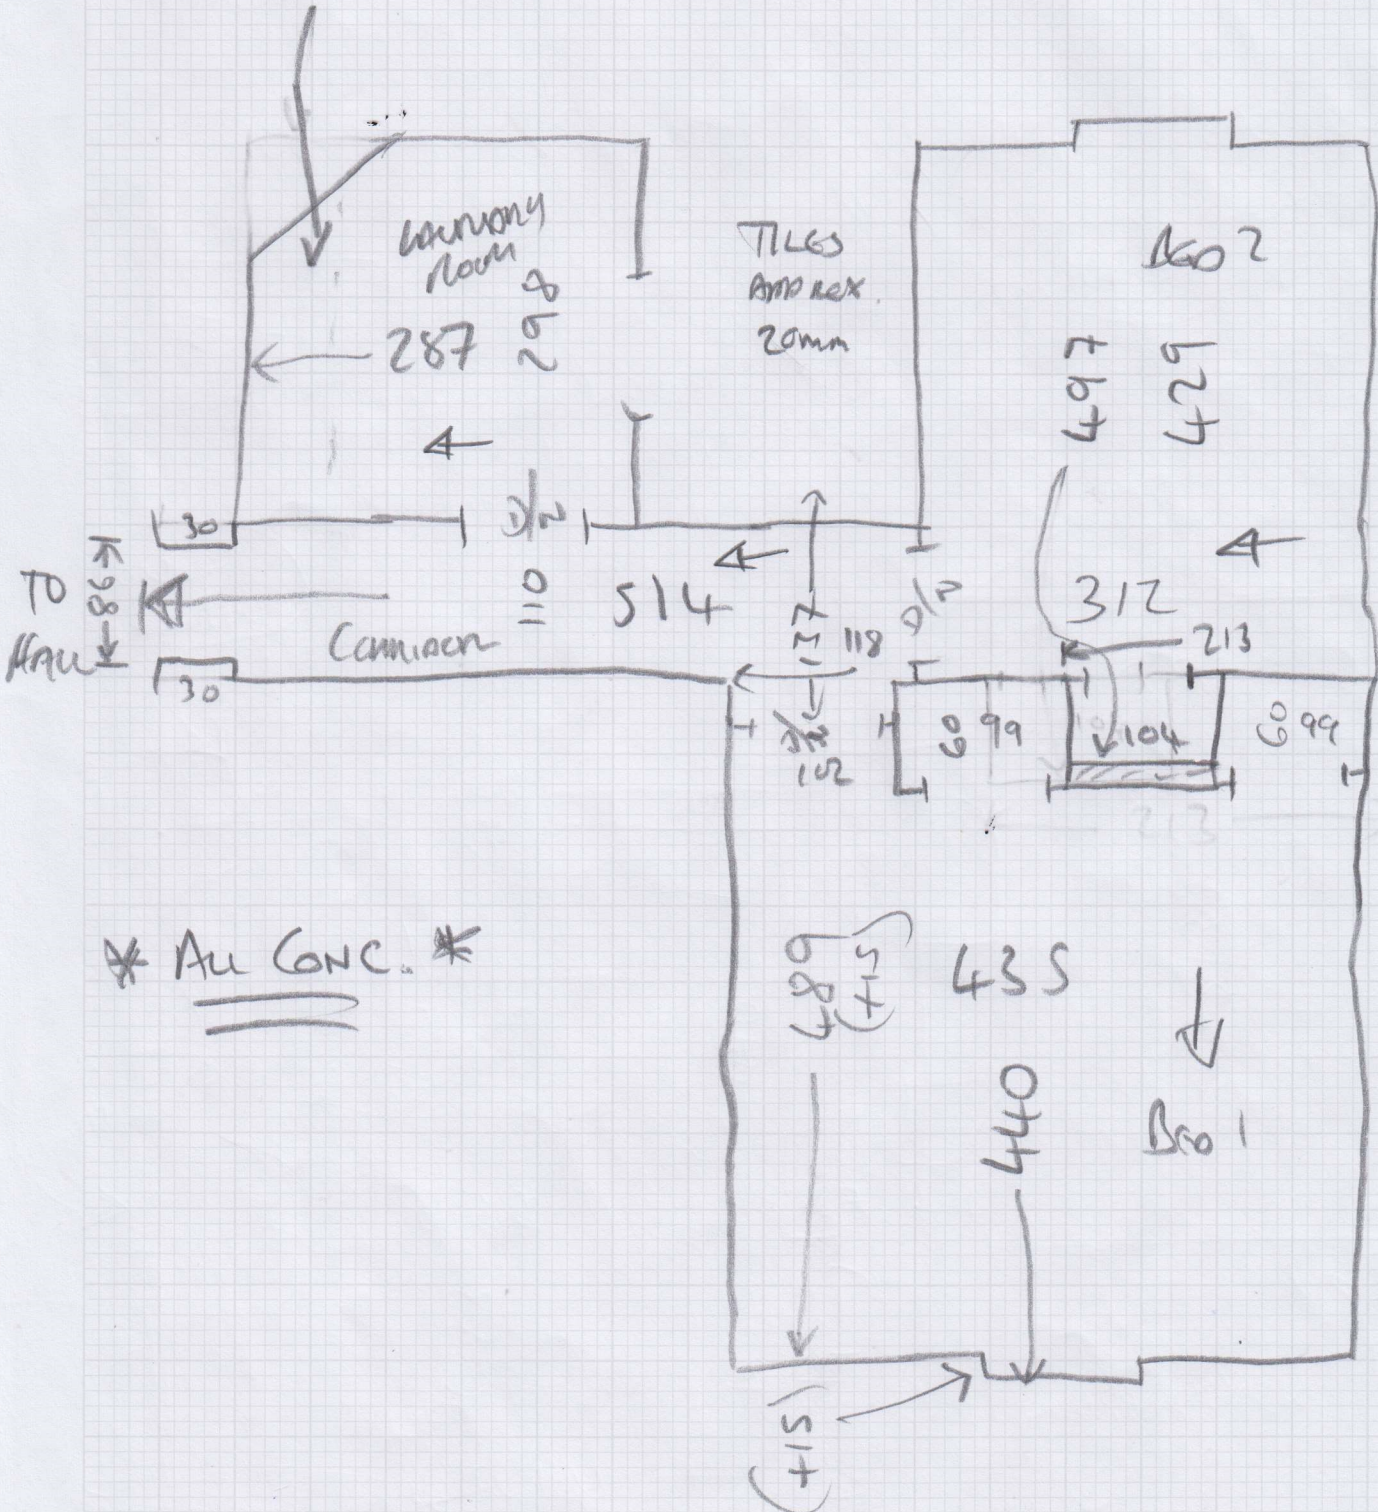 LAUNDRY
ROOM
287
298
TILES
APPROX.
20mm
BED 2
497
429
30
D/N
TO
HALL
86
110
514
CORRIDOR
137
118
D/N
312
213
30
D/N
102
60
99
104
60
99
213
* ALL CONC. *
489
(+15)
435
440
BED 1
(+15)